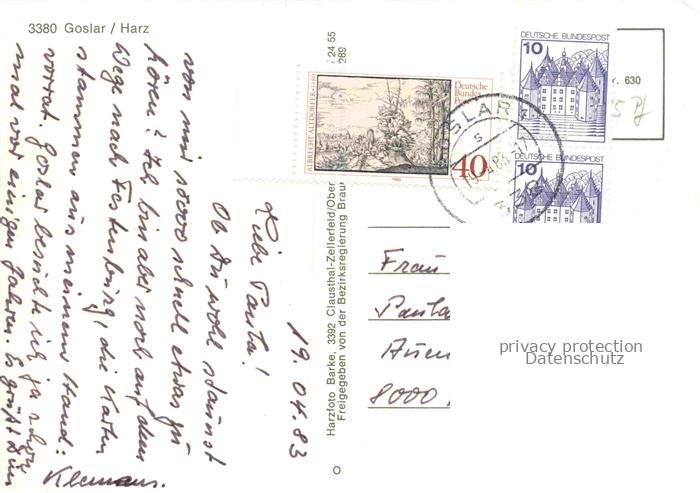 3380 Goslar / Harz
19.04.83
Liebe Panta!
Ob Du wohl staunst
von mir soooo schnell etwas zu
hören? Ich bin aber noch auf dem
Wege nach Festenburg, die Karten
stammen aus meinem Hand:
vorrat. Goslar besuchte ich ja schon
mal vor einigen Jahren. Es grüßt Dich
Klemens.
24 55
289
Harzfoto Barke, 3392 Clausthal-Zellerfeld/Ober
Freigegeben von der Bezirksregierung Brau
ALBRECHT ALTDORFER
Deutsche
Bundes
Po
40
1980
DEUTSCHE BUNDESPOST
10
DEUTSCHE BUNDESPOST
10
SLAR
r. 630
Frau
Panta
Auen
8000
privacy protection
Datenschutz